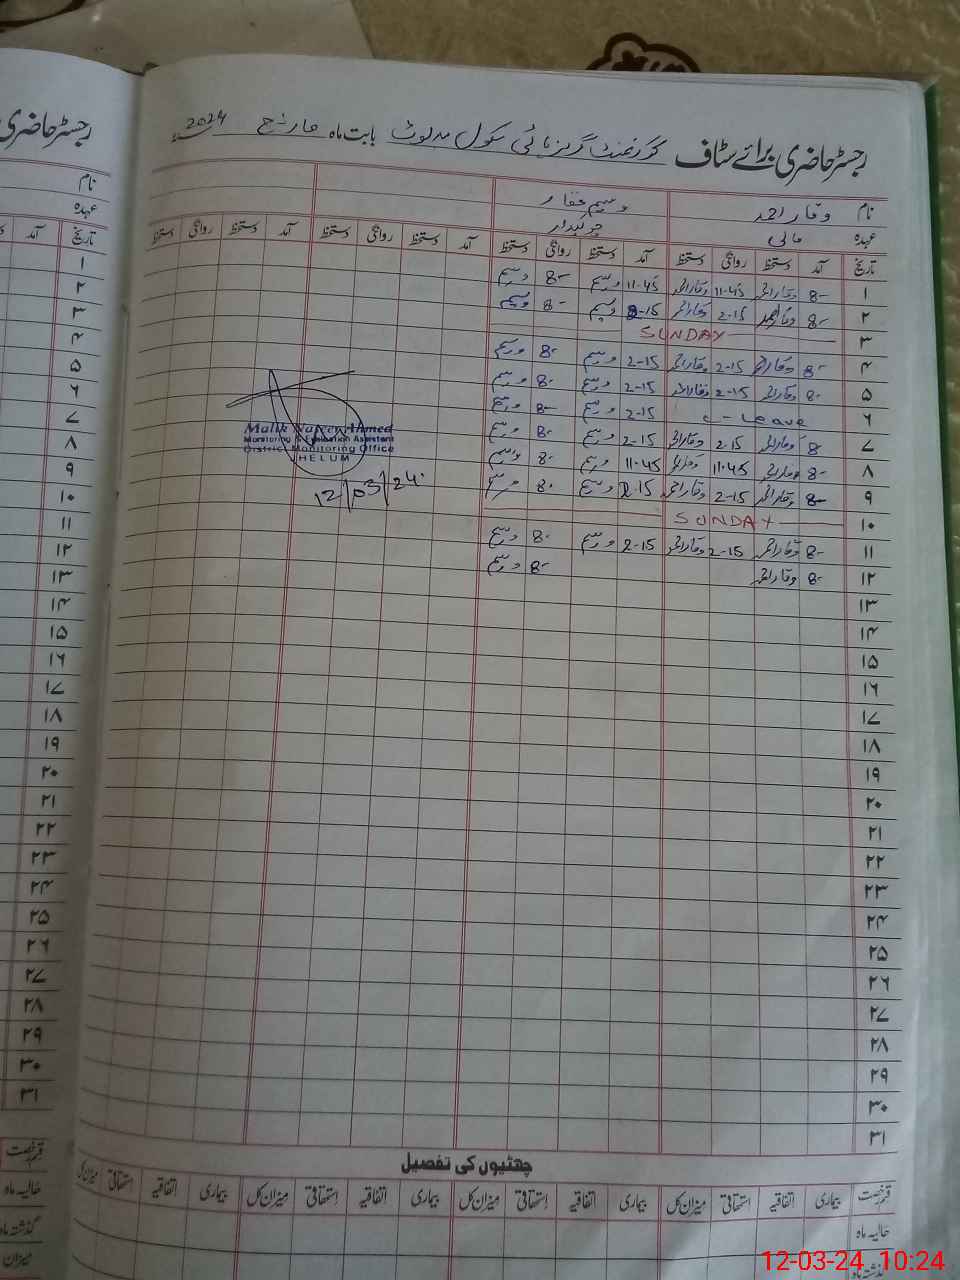 رجسٹر حاضری برائے سٹاف گورنمنٹ گرلز ہائی سکول مدلوٹ بابت ماہ مارچ 2024
نام وقار احمد وسیم غفار
عہدہ مالی چوکیدار
تاریخ آمد دستخط روانگی دستخط آمد دستخط روانگی دستخط آمد دستخط روانگی دستخط آمد دستخط روانگی دستخط
۱ 8- وقار احمد 11-45 وقار احمد 11-45 وسیم 8- وسیم
۲ 8- وقار احمد 2-15 وقار احمد 2-15 وسیم 8- وسیم
۳ SUNDAY
۴ 8- وقار احمد 2-15 وقار احمد 2-15 وسیم 8- وسیم
۵ 8- وقار احمد 2-15 وقار احمد 2-15 وسیم 8- وسیم
۶ c - Leave 2-15 وسیم 8- وسیم
۷ 8 وقار احمد 2-15 وقار احمد 2-15 وسیم 8- وسیم
۸ 8- وقار احمد 11-45 وقار احمد 11-45 وسیم 8- وسیم
۹ 8- وقار احمد 2-15 وقار احمد 2-15 وسیم 8- وسیم
۱۰ SUNDAY
۱۱ 8- وقار احمد 2-15 وقار احمد 2-15 وسیم 8- وسیم
۱۲ 8- وقار احمد 8- وسیم
۱۳
۱۴
۱۵
۱۶
۱۷
۱۸
۱۹
۲۰
۲۱
۲۲
۲۳
۲۴
۲۵
۲۶
۲۷
۲۸
۲۹
۳۰
۳۱
Malik Naseer Ahmed
Monitoring & Evaluation Assistant
District Monitoring Office
JHELUM
12/03/24
چھٹیوں کی تفصیل
قسم رخصت بیماری اتفاقیہ استحقاقی میزان کل بیماری اتفاقیہ استحقاقی میزان کل بیماری اتفاقیہ استحقاقی میزان کل بیماری اتفاقیہ استحقاقی میزان کل
حالیہ ماہ
گذشتہ ماہ
رجسٹر حاضری
نام
عہدہ
تاریخ آمد
۱
۲
۳
۴
۵
۶
۷
۸
۹
۱۰
۱۱
۱۲
۱۳
۱۴
۱۵
۱۶
۱۷
۱۸
۱۹
۲۰
۲۱
۲۲
۲۳
۲۴
۲۵
۲۶
۲۷
۲۸
۲۹
۳۰
۳۱
قسم رخصت
حالیہ ماہ
گذشتہ ماہ
میزان
12-03-24 10:24